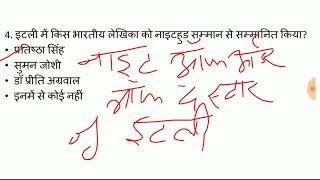 4. इटली में किस भारतीय लेखिका को नाइटहुड सम्मान से सम्मानित किया?
• प्रतिष्ठा सिंह
• सुमन जोशी
• डॉ प्रीति अग्रवाल
• इनमें से कोई नहीं
नाइट ऑफ ऑर्डर
ऑफ द स्टार
ऑफ इटली